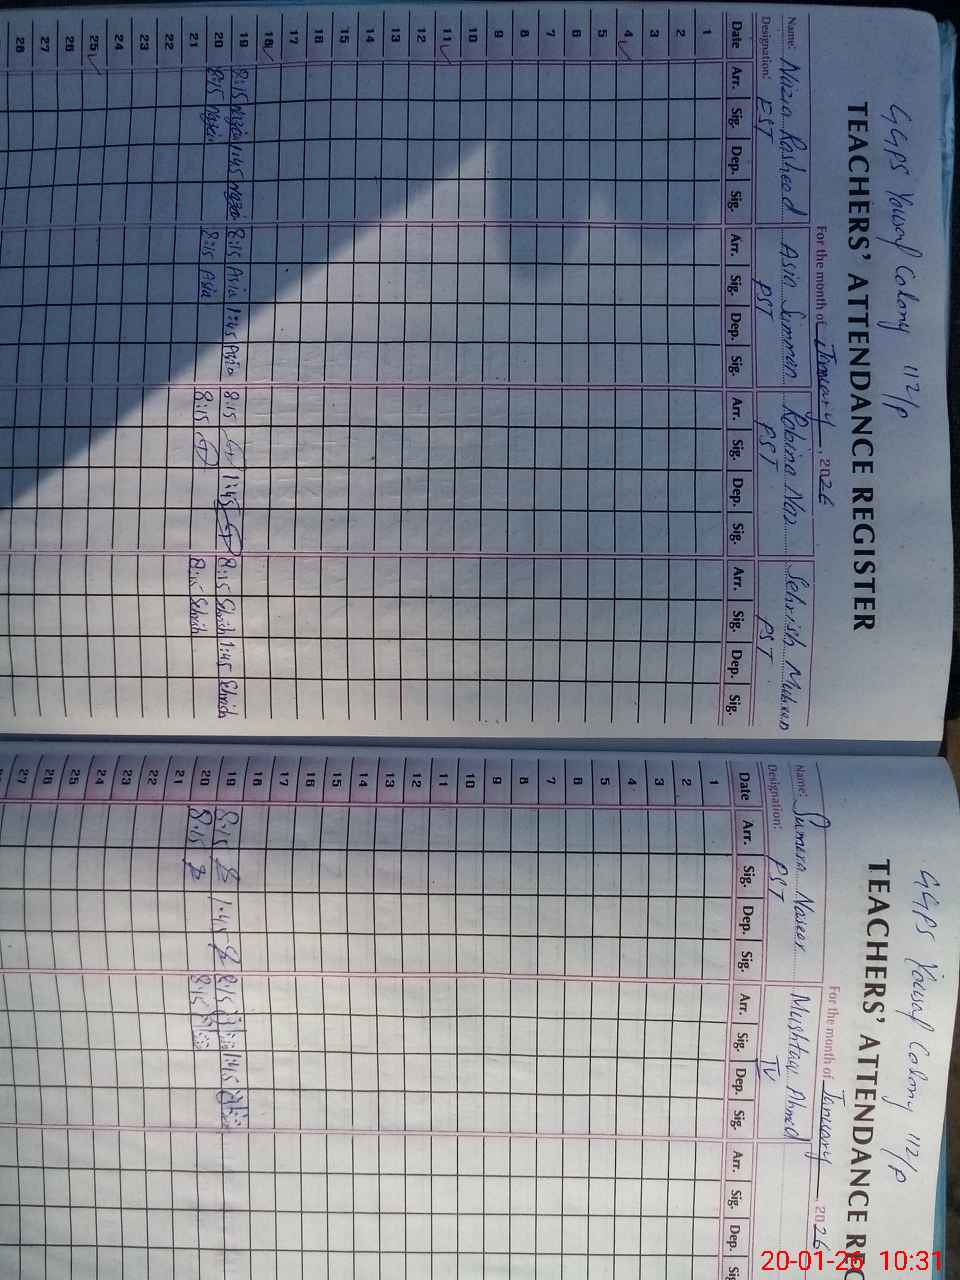 GGPS Yousaf Colony 112/P
TEACHERS' ATTENDANCE REGISTER
For the month of January, 2026
Name: Nazia Rasheed Asia Simran Robina Naz Sehrish Mubeen
Designation: EST PST PST PST
Date Arr. Sig. Dep. Sig. Arr. Sig. Dep. Sig. Arr. Sig. Dep. Sig. Arr. Sig. Dep. Sig.
1
2
3
4
5
6
7
8
9
10
11
12
13
14
15
16
17
18
19 8:15 Nazia 1:45 Nazia 8:15 Asia 1:45 Asia 8:15 1:45 8:15 Sehrish 1:45 Sehrish
20 8:15 Nazia 8:15 Asia 8:15 8:15 Sehrish
21
22
23
24
25
26
27
28
GGPS Yousaf Colony 112/P
TEACHERS' ATTENDANCE REC
For the month of January, 2026
Name: Sumera Naseer Mushtaq Ahmed
Designation: PST
Date Arr. Sig. Dep. Sig. Arr. Sig. Dep. Sig. Arr. Sig. Dep.
1
2
3
4
5
6
7
8
9
10
11
12
13
14
15
16
17
18
19 8:15 1:45 8:15 1:45
20 8:15 8:15
21
22
23
24
25
26
27
20-01-26 10:31